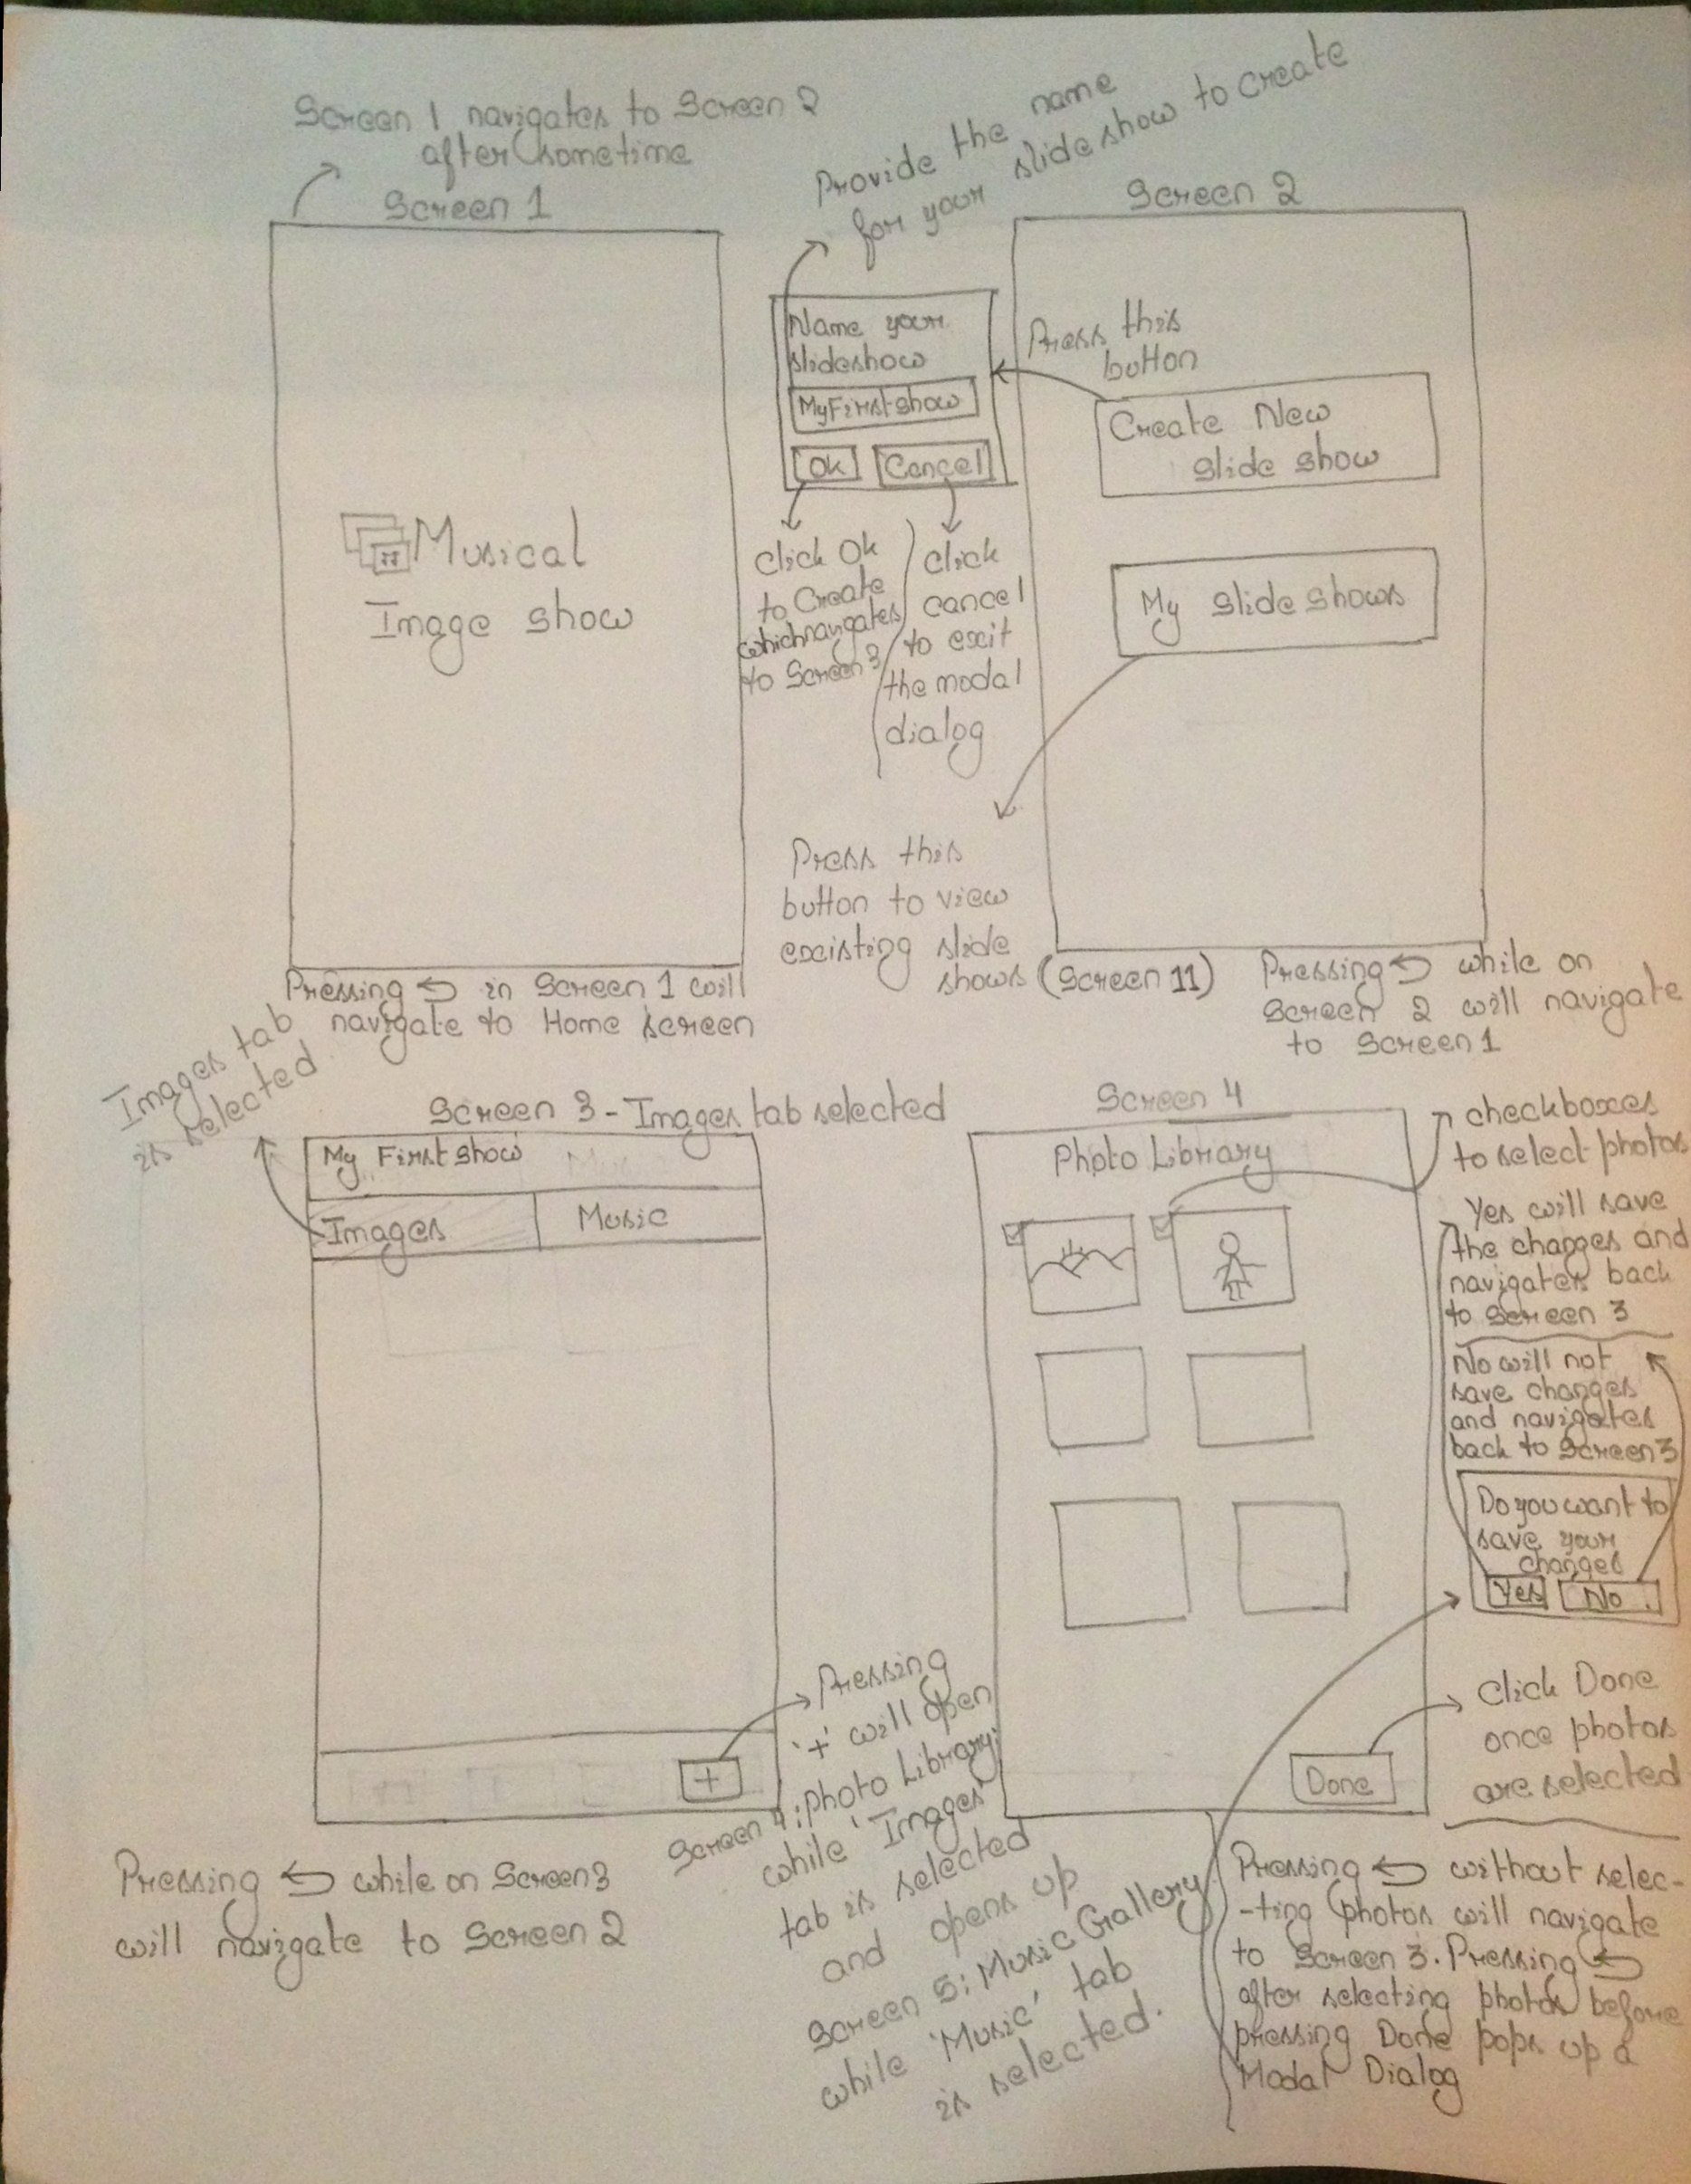 Screen 1 navigates to Screen 2
after sometime
Screen 1
Musical
Image show
Pressing ↩ in Screen 1 will
navigate to Home screen
Provide the name
for your slide show to create
Name your
slideshow
MyFirstshow
Ok
Cancel
click Ok
to Create
which navigates
to Screen 3
click
cancel
to exit
the modal
dialog
Screen 2
Press this
button
Create New
Slide show
My Slide Shows
Press this
button to view
existing slide
shows (Screen 11)
Pressing ↩ while on
Screen 2 will navigate
to Screen 1
Images tab
is selected
Screen 3 - Images tab selected
My First show
Images
Music
+
Pressing
'+' will open
Screen 4: photo Library
while 'Images'
tab is selected
and opens up
Screen 5: Music Gallery
while 'Music' tab
is selected.
Pressing ↩ while on Screen 3
will navigate to Screen 2
Screen 4
Photo Library
Done
checkboxes
to select photos
Yes will save
the changes and
navigates back
to Screen 3
No will not
save changes
and navigates
back to Screen 3
Do you want to
save your
changes
Yes
No
Click Done
once photos
are selected
Pressing ↩ without selec-
-ting photos will navigate
to Screen 3. Pressing ↩
after selecting photos before
pressing Done pops up a
Modal Dialog